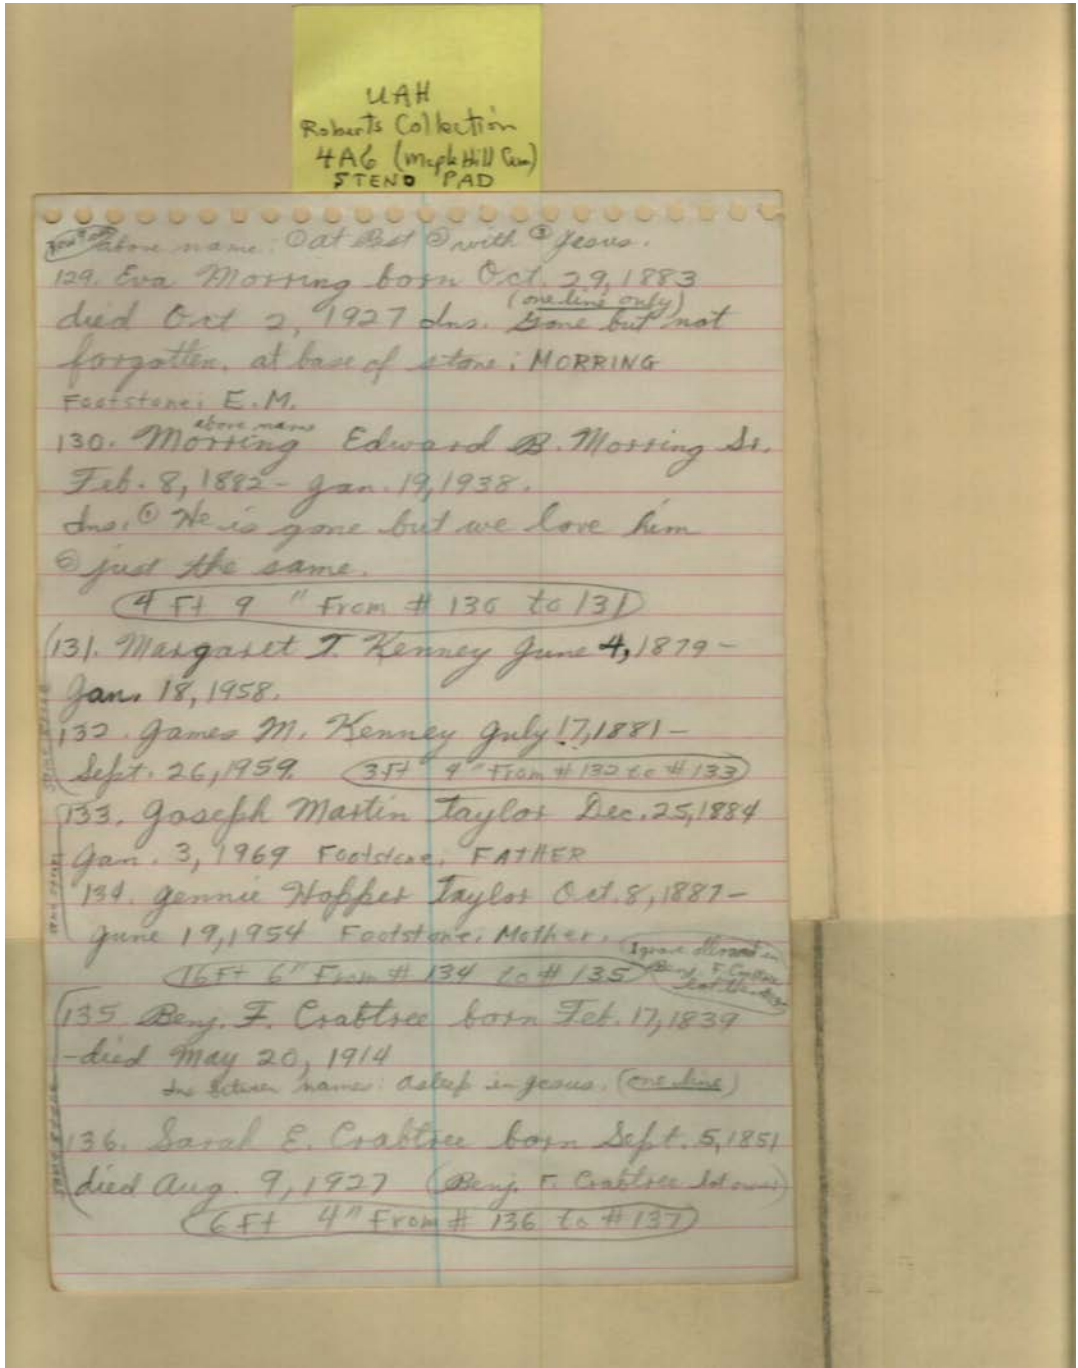 UAH
Roberts Collection
4A6 (Maple Hill Cem)
STENO PAD
above name: ① at Rest ② with ③ Jesus.
129. Eva Morring born Oct. 29, 1883
(one line only)
died Oct 2, 1927 Ins. Gone but not
forgotten. at base of stone: MORRING
Footstone: E.M.
above name
130. Morring Edward B. Morring Sr.
Feb. 8, 1882 - Jan. 19, 1938.
Ins. ① He is gone but we love him
② just the same.
4 Ft 9 " From # 130 to 131
131. Margaret T. Kenney June 4, 1879 -
Jan. 18, 1958.
132. James M. Kenney July 17, 1881 -
Sept. 26, 1959. 3 Ft 9" From # 132 to # 133
133. Joseph Martin Taylor Dec. 25, 1884
Jan. 3, 1969 Footstone, FATHER
134. Jennie Hopper Taylor Oct. 8, 1887 -
June 19, 1954 Footstone, Mother.
1 grave in
Benj. F.
16 Ft 6" From # 134 to # 135
135 Benj. F. Crabtree born Feb. 17, 1839
- died May 20, 1914
Ins between names: asleep in Jesus. (one line)
136. Sarah E. Crabtree born Sept. 5, 1851
died Aug. 9, 1927 (Benj. F. Crabtree lot owner)
6 Ft 4" From # 136 to # 137